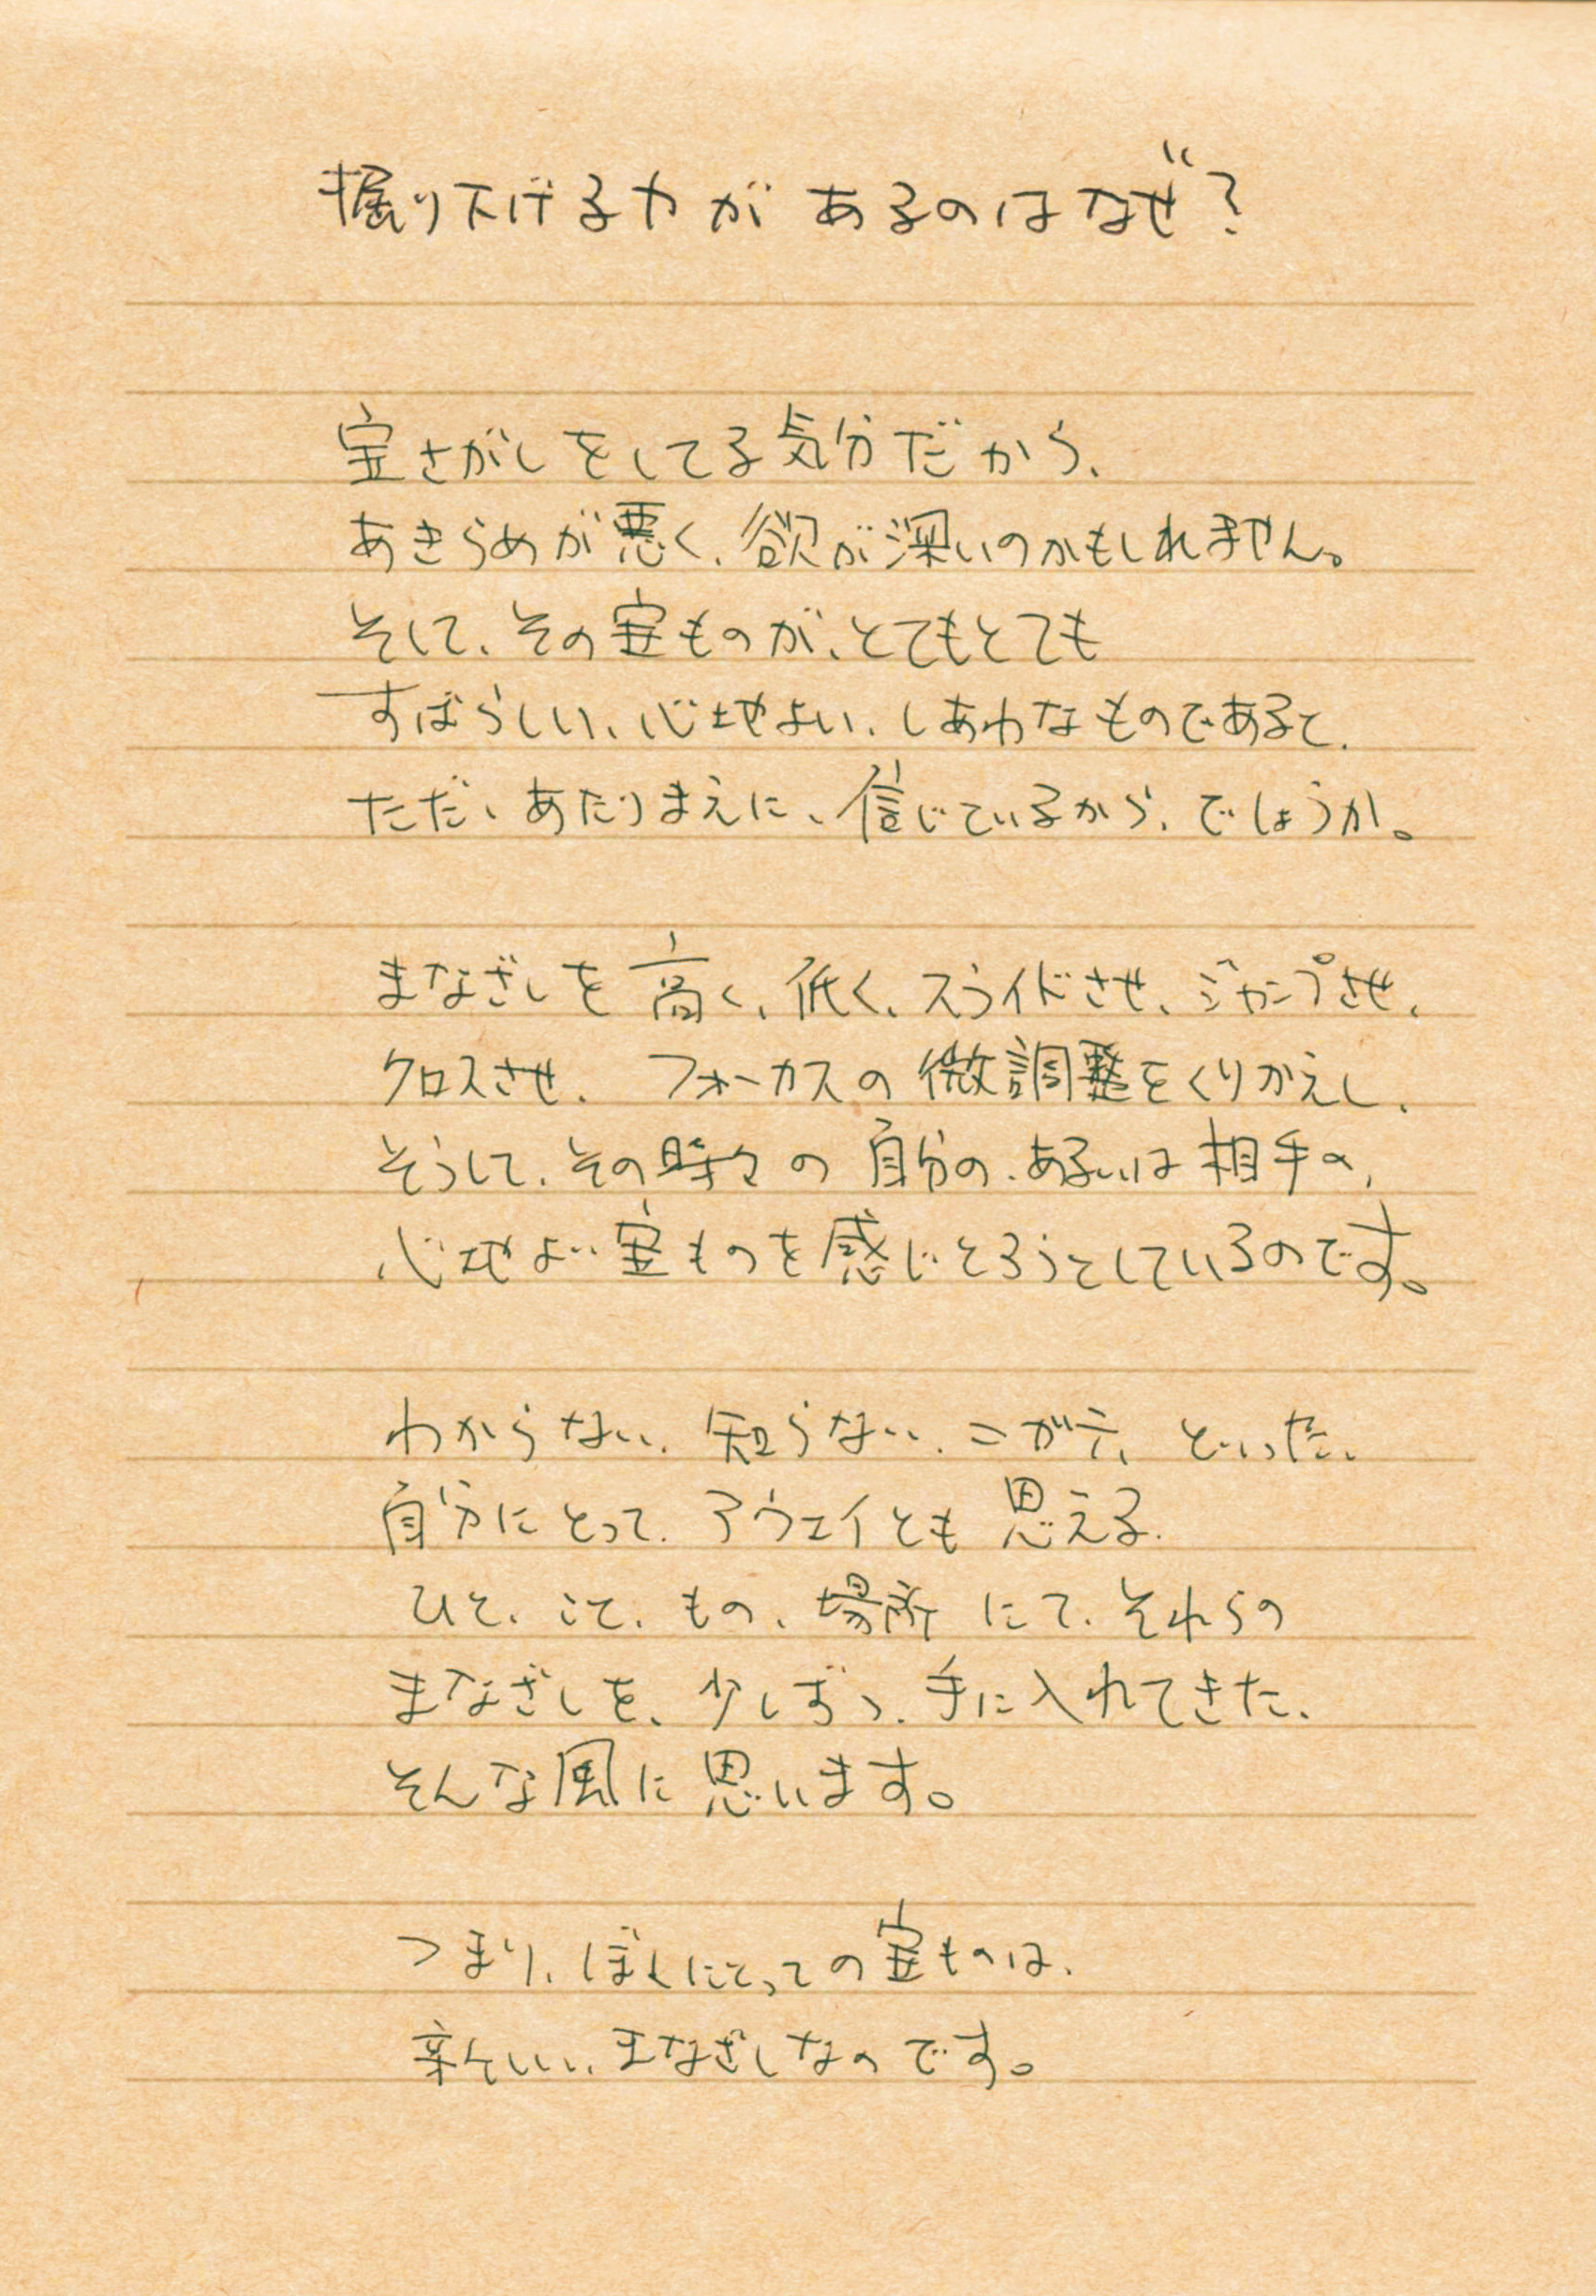 掘り下げる力が あるのはなぜ?
宝さがしをしてる気分だから、
あきらめが悪く、欲が深いのかもしれません。
そして、その宝ものが、とてもとても
すばらしい、心地よい、しあわなものであると、
ただ、あたりまえに、信じているから、でしょうか。
まなざしを高く、低く、スライドさせ、ジャンプさせ、
クロスさせ、フォーカスの微調整をくりかえし、
そうして、その時々の自分の、あるいは相手の、
心地よい宝ものを感じとろうとしているのです。
わからない、知らない、ニガテ、といった、
自分にとって、アウェイとも思える、
ひと、こと、もの、場所にて、それらの
まなざしを、少しずつ、手に入れてきた、
そんな風に思います。
つまり、ぼくにとっての宝ものは、
新しい、まなざしなのです。